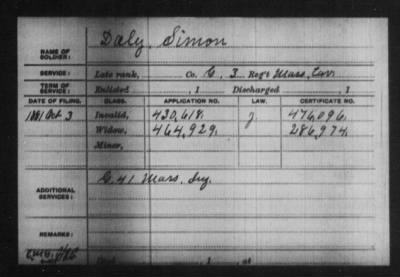 Daly, Simon
NAME OF SOLDIER:
SERVICE: Late rank, Co. G, 3 Reg't Mass. Cav.
TERM OF SERVICE: Enlisted , 1 Discharged , 1
DATE OF FILING. CLASS. APPLICATION NO. LAW. CERTIFICATE NO.
1881 Oct 3 Invalid, 430,618. 476,096.
Widow, 464,929. 286,974.
Minor,
ADDITIONAL SERVICES: G. 41 Mass. Inf.
REMARKS: